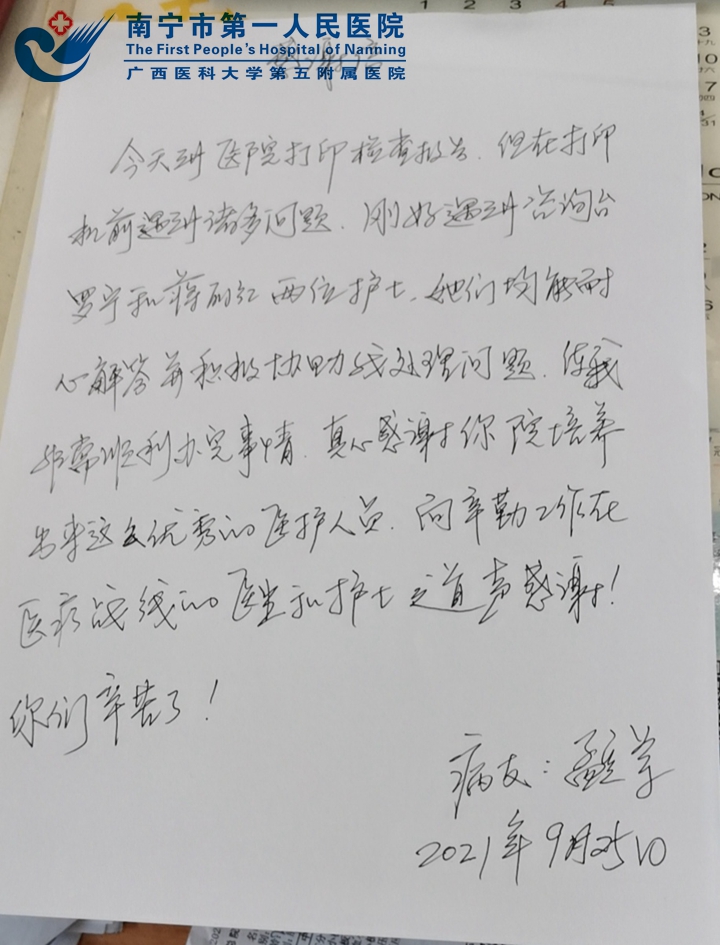 南宁市第一人民医院
The First People's Hospital of Nanning
广西医科大学第五附属医院
感谢信
今天到医院打印检查报告、但在打印
机前遇到诸多问题、刚好遇到咨询台
罗宁和蒋丽红两位护士、她们均能耐
心解答并积极协助我处理问题、使我
非常顺利办完事情、真心感谢你院培养
出来这么优秀的医护人员、向辛勤工作在
医疗战线的医生和护士道声感谢！
你们辛苦了！
病友：
2021年9月25日